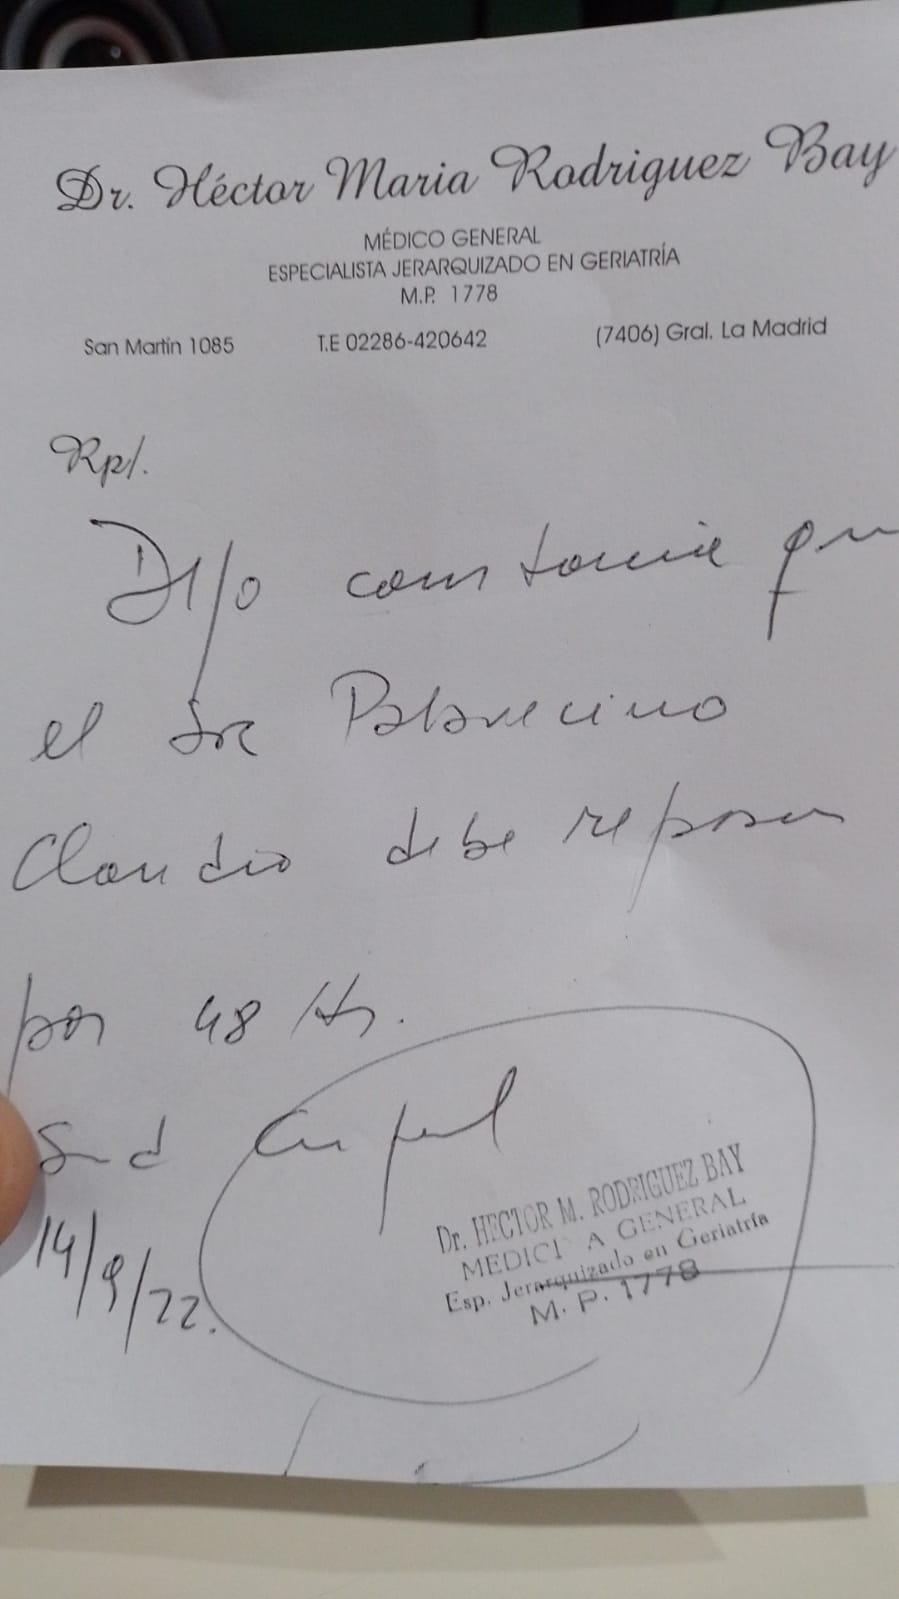 Dr. Héctor Maria Rodriguez Bay
MÉDICO GENERAL
ESPECIALISTA JERARQUIZADO EN GERIATRÍA
M.P. 1778
San Martín 1085 T.E 02286-420642 (7406) Gral. La Madrid
Rp/.
Dejo constancia que
el Sr Palavecino
Claudio debe reposar
por 48 Hs.
14/9/22.
Dr. HECTOR M. RODRIGUEZ BAY
MEDICI A GENERAL
Esp. Jerarquizado en Geriatría
M. P. 1778